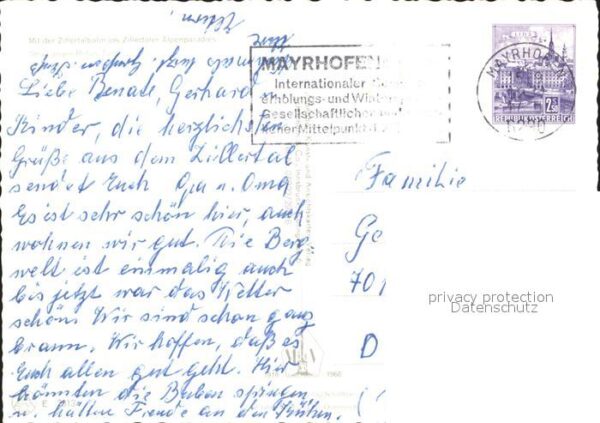 Mit der Zillertalbahn ins Zillertaler Alpenparadies
MAYRHOFEN
Internationaler
erholungs- und Winter
Gesellschaftlicher
einer Mittelpunkt
MAYRHOFEN
6290
LINZ
2S
REPUBLIK ÖSTERREICH
Liebe Renate, Gerhard u.
Kinder, die herzlichsten
Grüße aus dem Zillertal
sendet Euch Opa u. Oma
Es ist sehr schön hier, auch
wohnen wir gut. Die Berg
welt ist einmalig auch
bis jetzt war das Wetter
schön. Wir sind schon ganz
braun. Wir hoffen, daß es
Euch allen gut geht. Hier
könnten die Buben springen
u. hätten Freude an den Kühen.
Familie
Ge
701
D
privacy protection
Datenschutz
1960